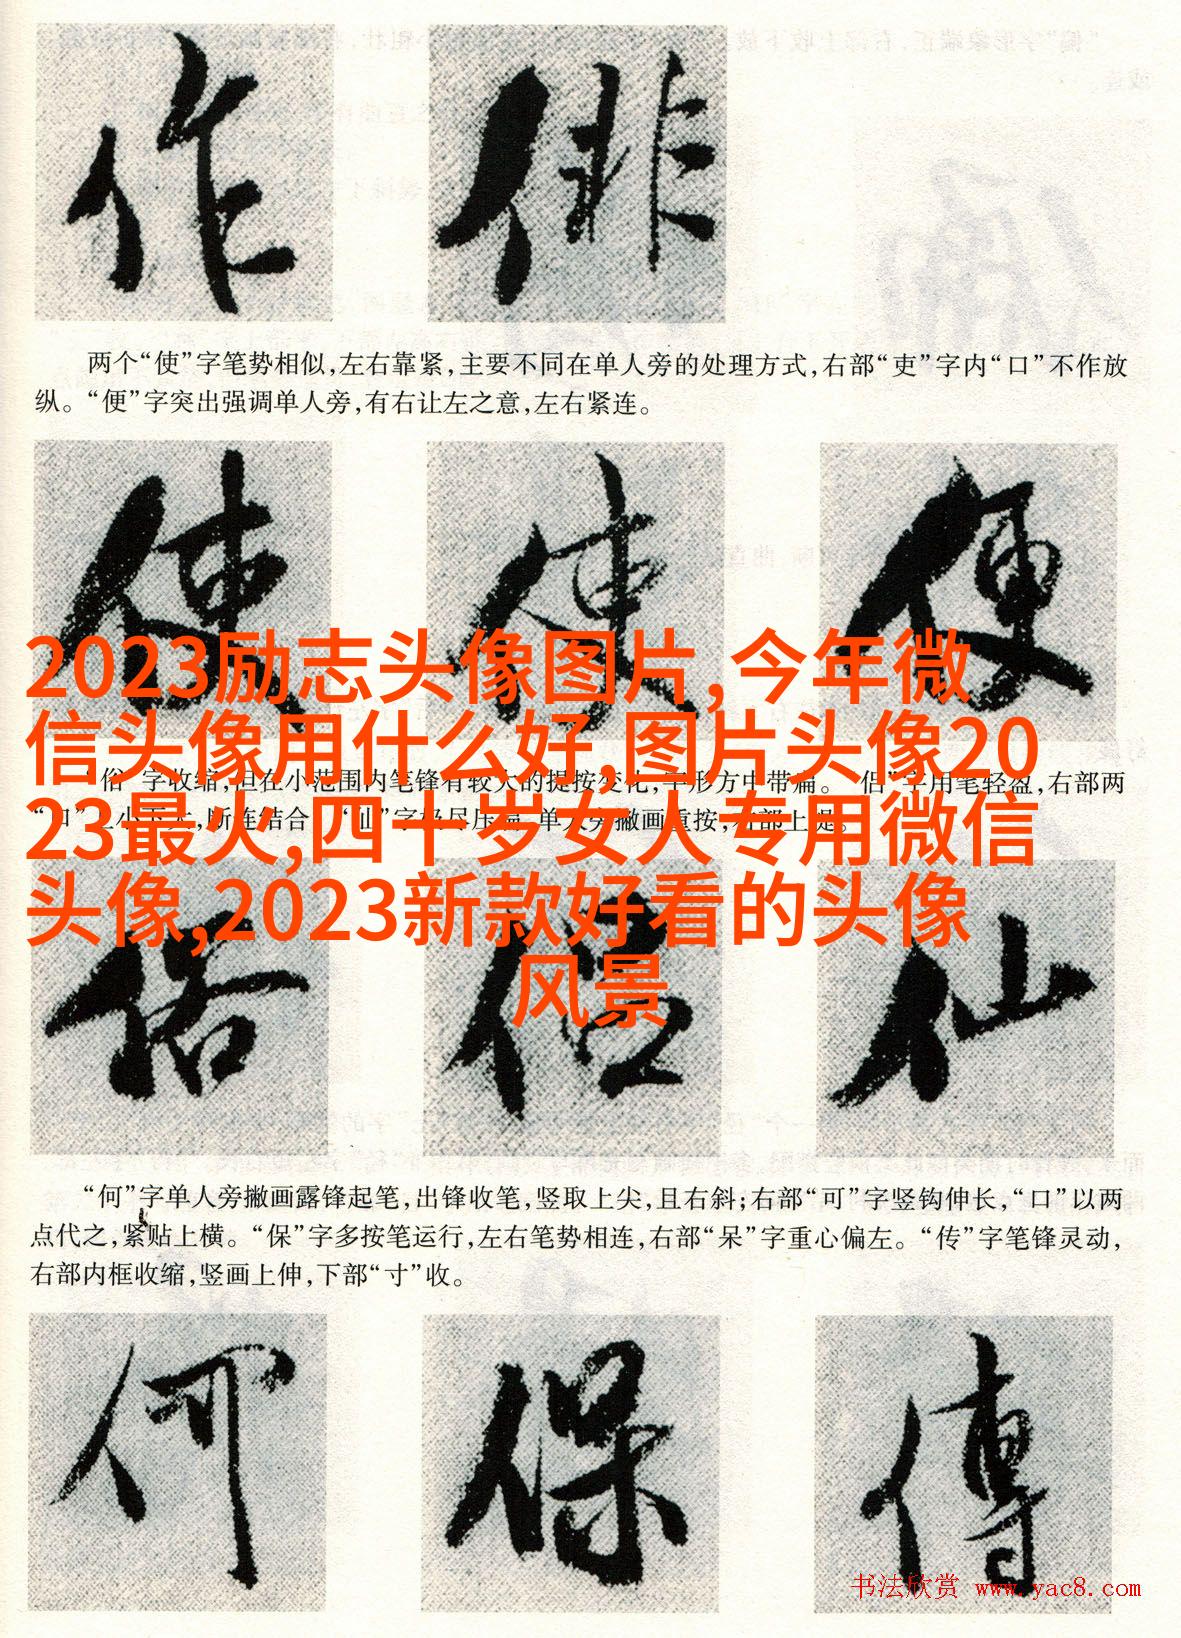 作 俳
两个“使”字笔势相似,左右靠紧,主要不同在单人旁的处理方式,右部“吏”字内“口”不作放
纵。“便”字突出强调单人旁,有右让左之意,左右紧连。
使 使 便
2023励志头像图片,今年微
信头像用什么好,图片头像20
23最火,四十岁女人专用微信
头像,2023新款好看的头像
风景
“俗”字收缩,但在小范围内笔锋有较大的提按变化,字形方中带扁。“侣”字用笔轻盈,右部两
“口”上小下大,断连结合。“仙”字极尽压扁,单人旁撇画重按,右部上提。
俗 侣 仙
“何”字单人旁撇画露锋起笔,出锋收笔,竖取上尖,且右斜;右部“可”字竖钩伸长,“口”以两
点代之,紧贴上横。“保”字多按笔运行,左右笔势相连,右部“呆”字重心偏左。“传”字笔锋灵动,
右部内框收缩,竖画上伸,下部“寸”收。
何 保 傳
书法欣赏 www.yac8.com